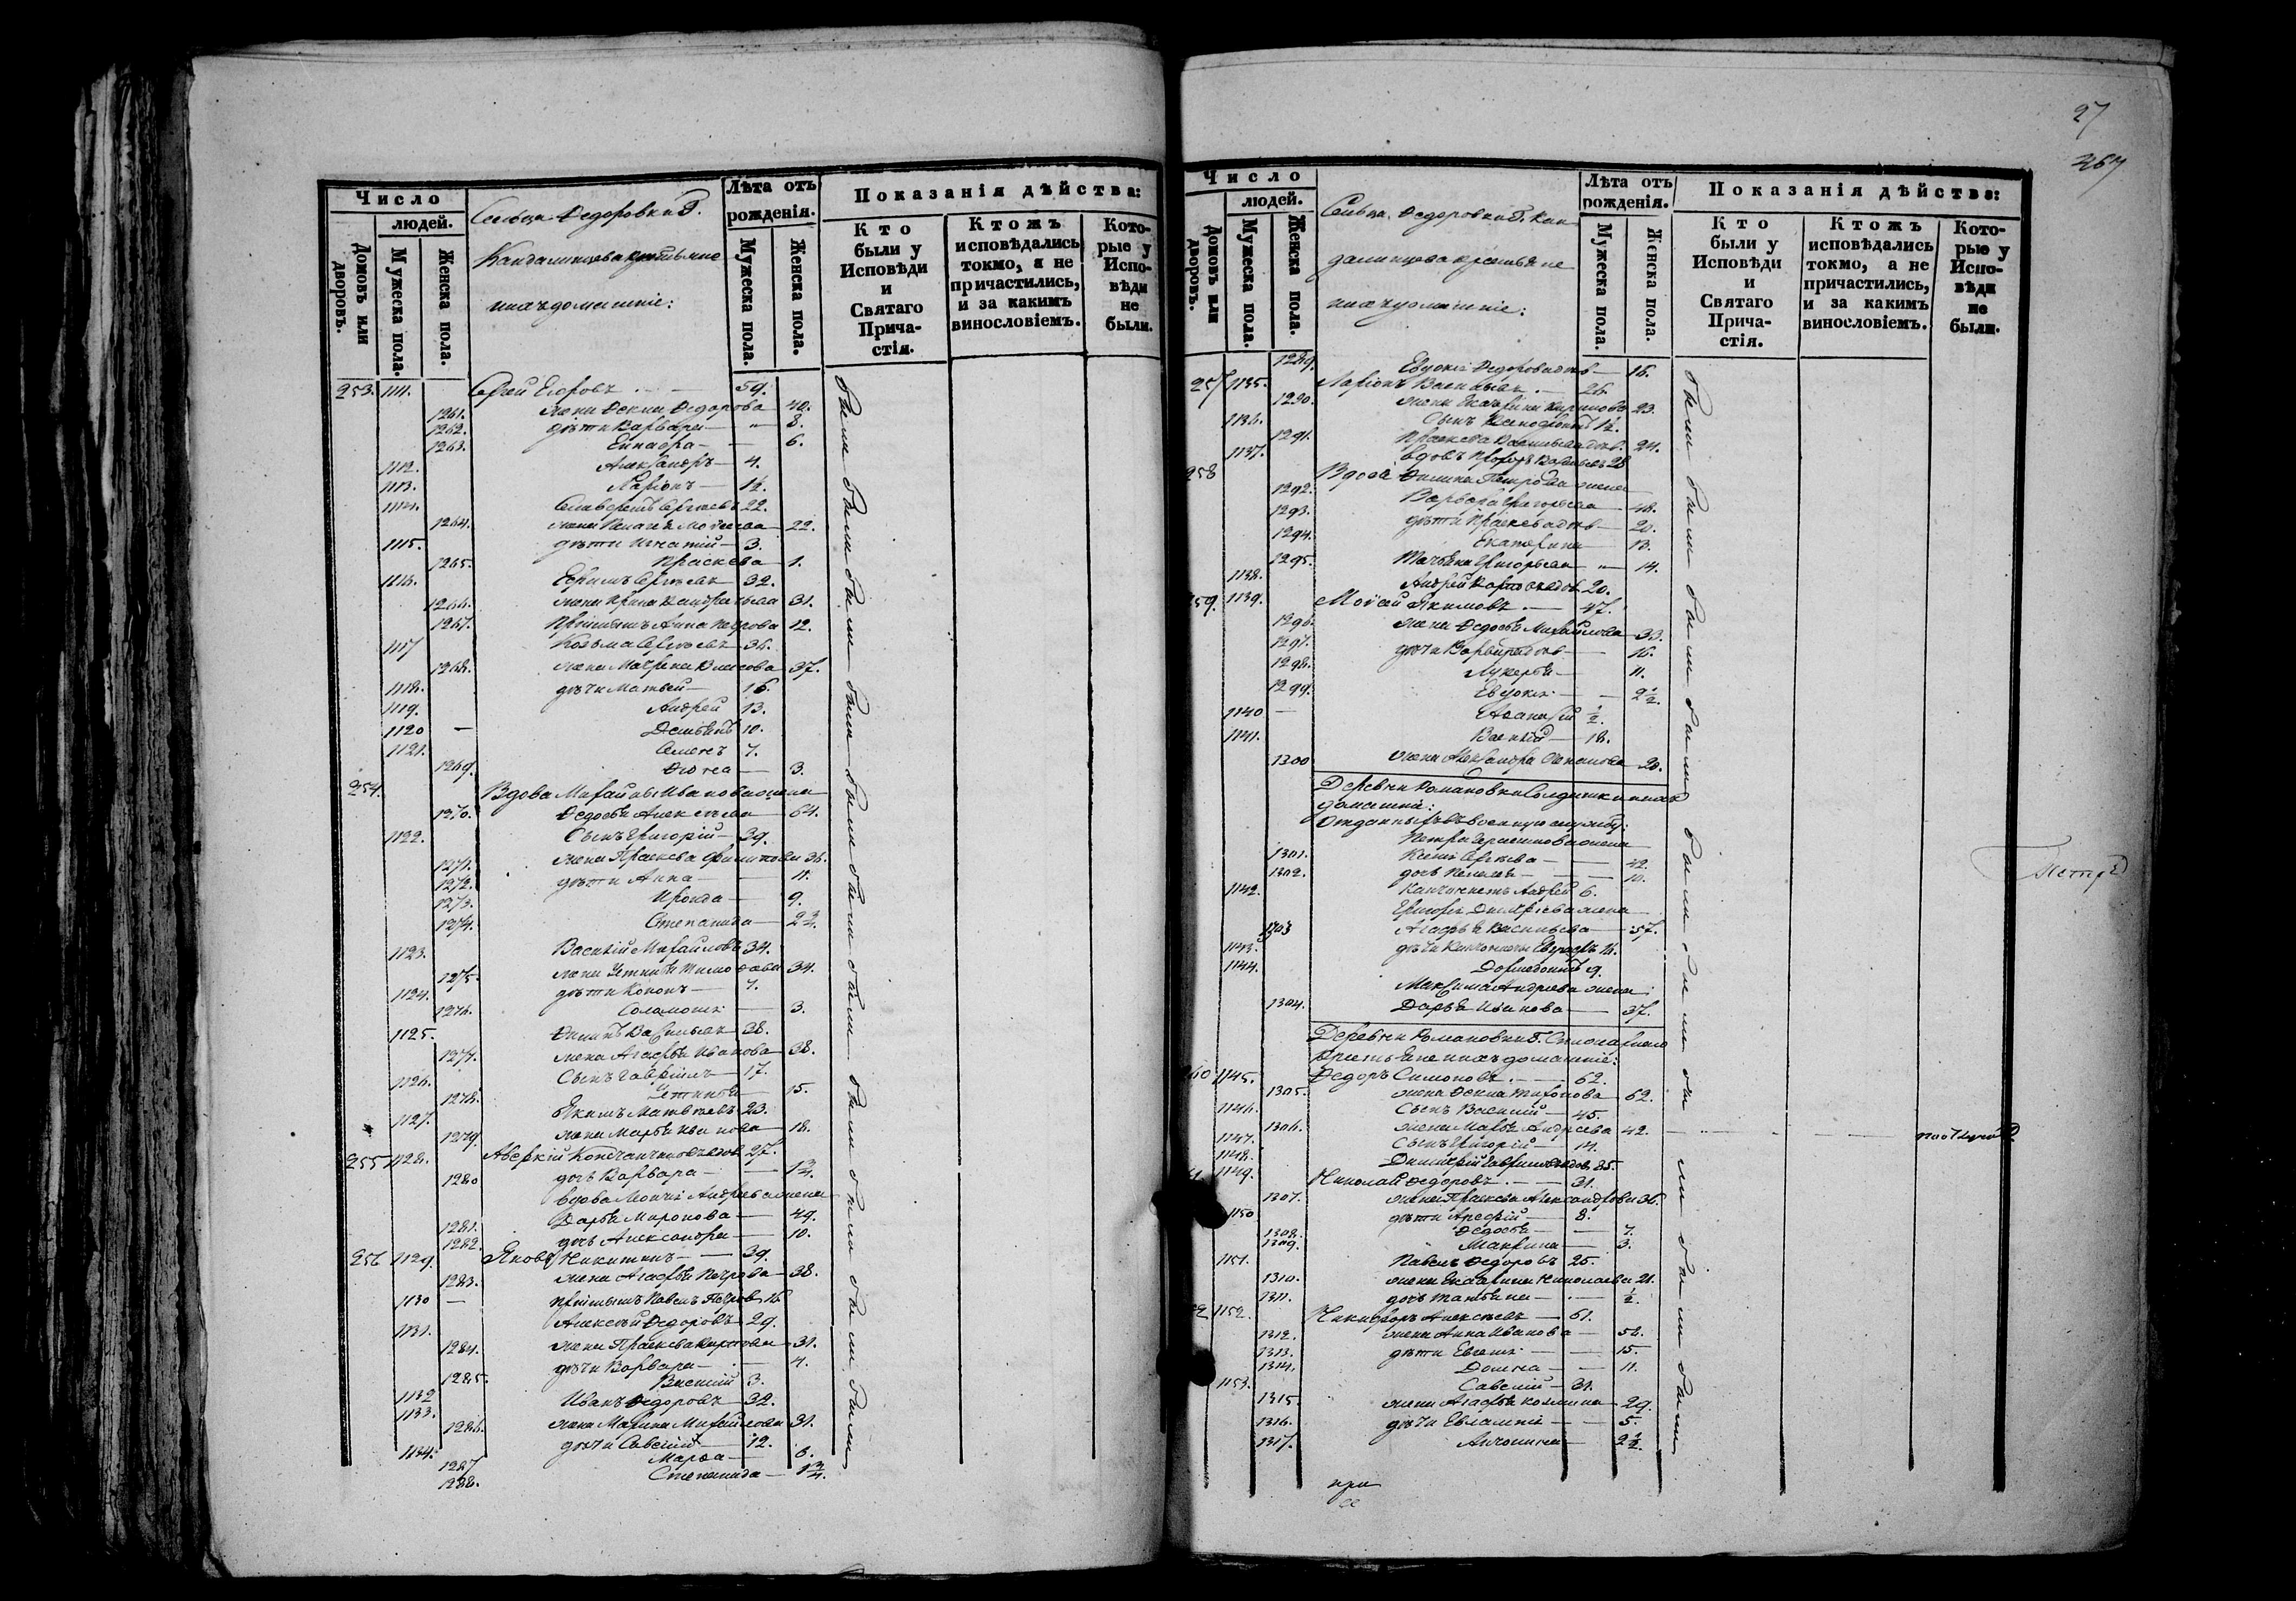 Число
людей.
Домовъ или дворовъ.
Мужеска пола.
Женска пола.
Сельца Федоровки Г.
Кандалинцева крестьяне
ихъ домашніе:
Лѣта отъ рожденія.
Мужеска пола.
Женска пола.
Показанія дѣйства:
Кто были у Исповѣди и Святаго Причастія.
Ктожъ исповѣдались токмо, а не причастились, и за какимъ винословіемъ.
Которые у Исповѣди не были.
253. 1111. Сергей Егоровъ 59.
1261. жена Фекла Федорова 40.
1262. дѣти Варвара 8.
1263. 6.
1112. Александръ 4.
1113. Ларіонъ 1½.
1114. Сергѣевъ 22.
1264. жена Пелагея 22.
1115. дѣти Игнатій 3.
1265. Праскева 1.
1116. Ефимъ Сергѣевъ 32.
1266. жена Ирина Кандратьева 31.
1267. Анна Петрова 12.
1117 Козьма Сергѣевъ 36.
1268. жена Матрена Власова 37.
1118. дѣти Матвей 16.
1119. Андрей 13.
1120 Демьянъ 10.
1121. Семенъ 7.
1269. Фекла 3.
254. Вдова Михайлы Иванова жена
1270. Федосья Алексѣева 64.
1122. Сынъ Григорій 39.
1271. жена Праскева Филипова 36.
1272. дѣти Анна 11.
1273. Ираида 9.
1274. Степанида 2¾.
1123. Василій Михайловъ 34.
1275. жена Устинья Тимофеева 34.
1124. дѣти Кононъ 7.
1276. Соломонія 3.
1125. Филипъ Васильевъ 38.
1277. жена Агафья Иванова 38.
1126. Сынъ Гавріилъ 17.
1278. Устинья 15.
1127. Якимъ Матвѣевъ 23.
1279 жена Марья Иванова 18.
255 1128. Аверкій 27.
1280 дочь Варвара 1¾.
вдова Андреева жена
1281. Дарья Миронова 49.
1282. дочь Александра 10.
256 1129. Яковъ Никитинъ 39.
1283. жена Агафья Петрова 38.
1130 Павелъ Петровъ 16.
1131. Алексѣй Федоровъ 29.
1284. жена Праскева 31.
1285. дѣти Варвара 4.
1132 Василий 3.
1133. Иванъ Федоровъ 32.
1286. жена Марина Михайлова 31.
1134. дѣти Савелий 12.
1287 Марфа 6.
1288. Степанида 1¾.
были были были были были были были были были были были
27
367
Число
людей.
Домовъ или дворовъ.
Мужеска пола.
Женска пола.
Сельца Федоровки Г. Кан-
далинцева крестьяне
ихъ домашніе:
Лѣта отъ рожденія.
Мужеска пола.
Женска пола.
Показанія дѣйства:
Кто были у Исповѣди и Святаго Причастія.
Ктожъ исповѣдались токмо, а не причастились, и за какимъ винословіемъ.
Которые у Исповѣди не были.
1289. Евдокія Федорова 16.
257 1135. Ларіонъ Васильевъ 26.
1290. жена Екатерина Кирилова 23.
1136. Сынъ 1½.
1291. Праскева Васильева 24.
1137. вдовъ 28
258 Вдова Филипа Петрова жена
1292. Варвара Григорьева 48.
1293. дѣти Праскева 20.
1294. Екатерина 13.
1295. Татьяна Григорьева 14.
1138. Андрей 20.
259. 1139. Моисей Якимовъ 47.
1296. жена Федосья Михайлова 33.
1297. дѣти Варвара 16.
1298. Лукерья 11.
1299. Евдокія 2½.
1140 Афанасій ½.
1141. Василій 18.
1300 жена Александра 20.
Деревни Романовки Солдатки и ихъ
домашніе:
Отданныхъ въ военную службу:
Петра Герасимова жена
1301. Ксенія Сергѣева 42.
1302. дочь Пелагея 10.
1142. Кантонистъ Андрей 6.
Григорья Дмитріева жена
1303 Агафья Васильева 37.
1143. дѣти Кантонисты 16.
1144. Дормедонтъ 9.
Максима Андреева жена
1304. Дарья Иванова 37.
Деревни Романовки Г.
крестьяне и ихъ домашніе:
260 1145. Федоръ Симоновъ 62.
1305. жена Фекла Тихонова 62.
1146. Сынъ Василій 45.
1306. жена Марья Андреева 42.
1147. Сынъ Григорій 14.
1148. Димитрій 85.
1149. Николай Федоровъ 31.
1307. жена Праскева Александрова 36.
1150 дѣти 8.
1308. Федосья 7.
1309. Макрина 3.
1151. Павелъ Федоровъ 25.
1310. жена Екатерина Николаева 21.
1311. дочь Татьяна ½.
1152. Никифоръ Алексѣевъ 61.
1312. жена Анна Иванова 56.
1313. дѣти Евгенія 15.
1314. Домна 11.
1153. Савелий 31.
1315. жена Агафья 29.
1316. дѣти Евлампія 5.
1317. Антонина 2½.
были были были были были были были были были